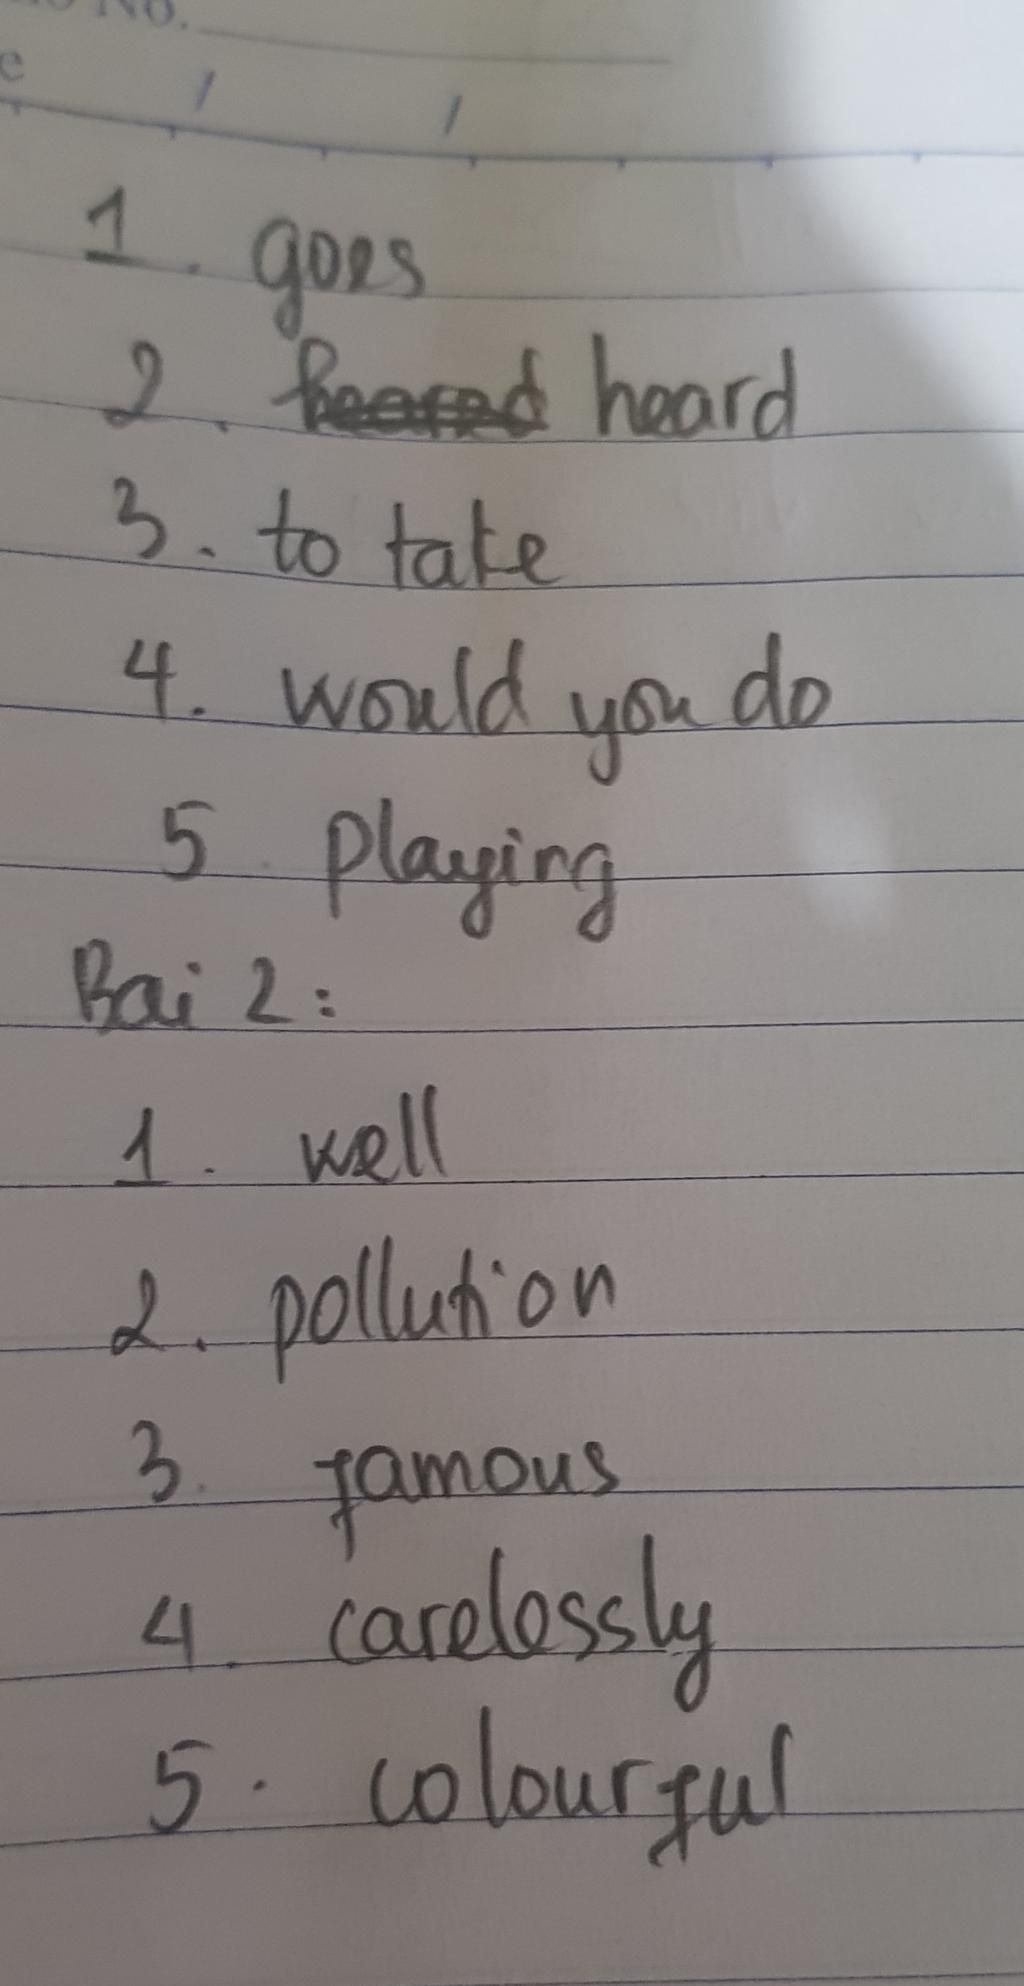 No.
e / /
1. goes
2. heard
3. to take
4. would you do
5. playing
Bai 2:
1. well
2. pollution
3. famous
4. carelessly
5. colourful